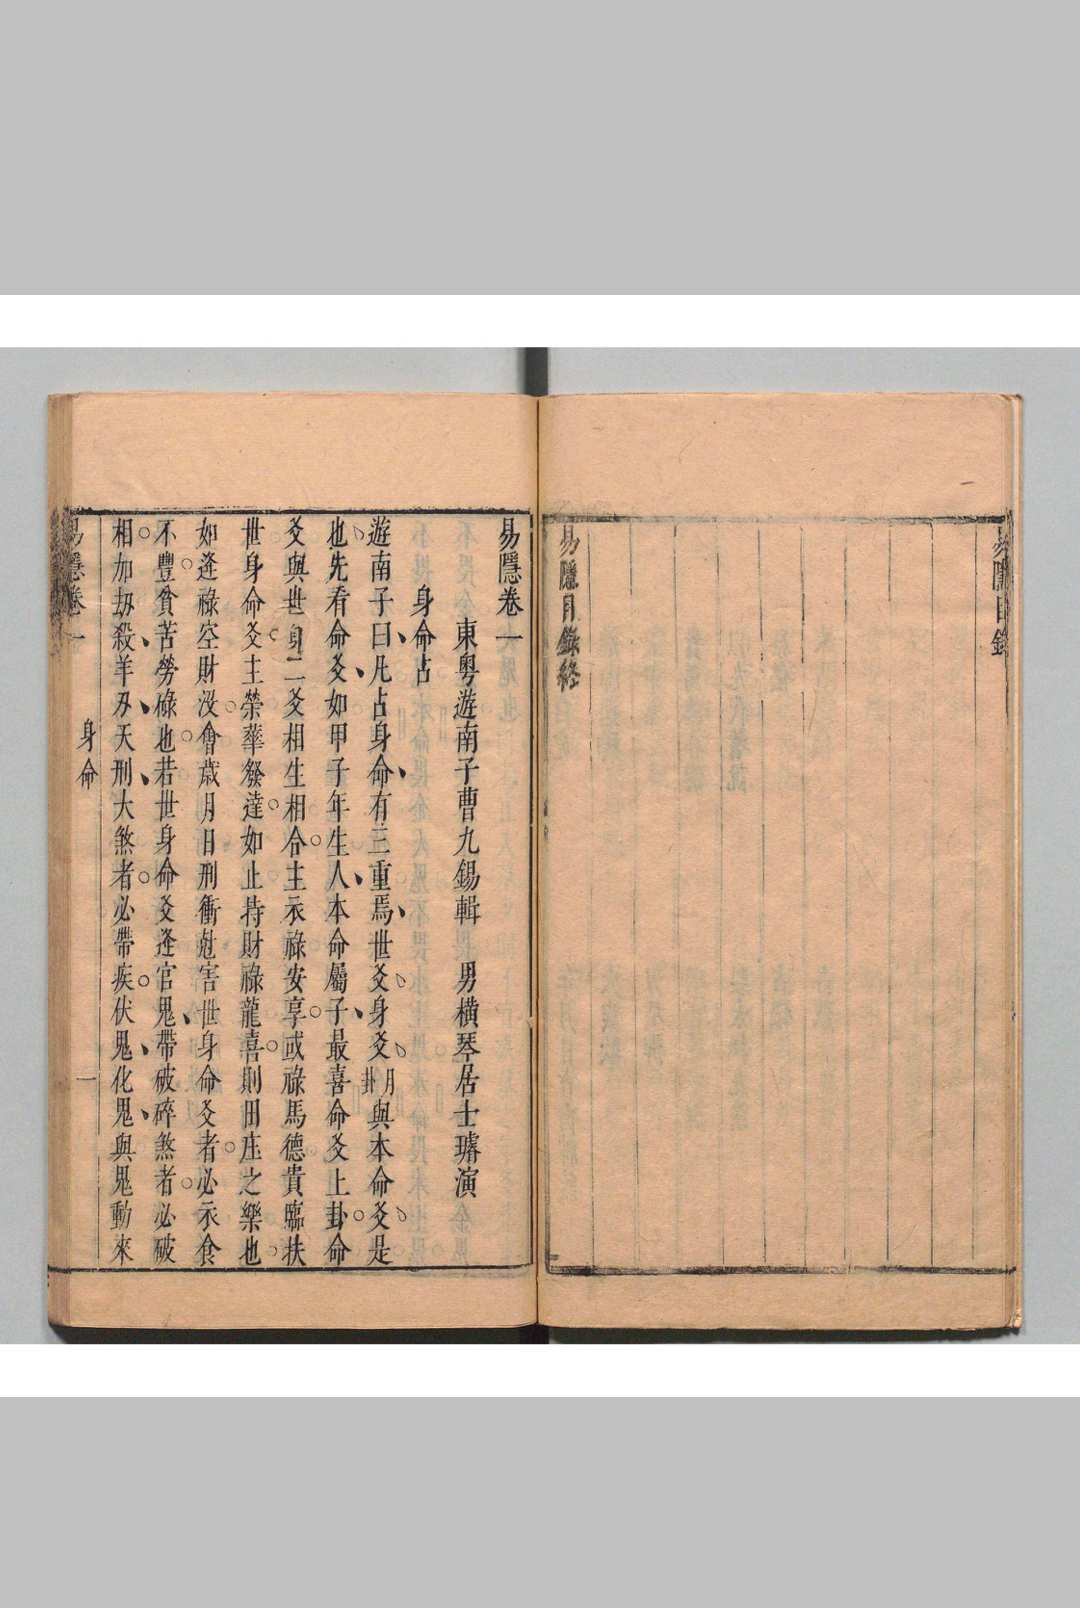 易隱目錄
易隱目錄終
易隱卷一
東粵遊南子曹九錫輯　男橫琴居士璿演
身命占
遊南子曰凡占身命有三重焉世爻身爻月卦與本命爻是
也先看命爻如甲子年生人本命屬子最喜命爻上卦命
爻與世身二爻相生相合主衣祿安享或祿馬德貴臨扶
世身命爻主榮華發達如止持財祿龍喜則田庄之樂也
如逢祿空財沒會歲月日刑衝尅害世身命爻者必衣食
不豐貧苦勞碌也若世身命爻逢官鬼帶破碎煞者必破
相加劫殺羊刃天刑大煞者必帶疾伏鬼化鬼與鬼動來
易隱卷一
身命
一